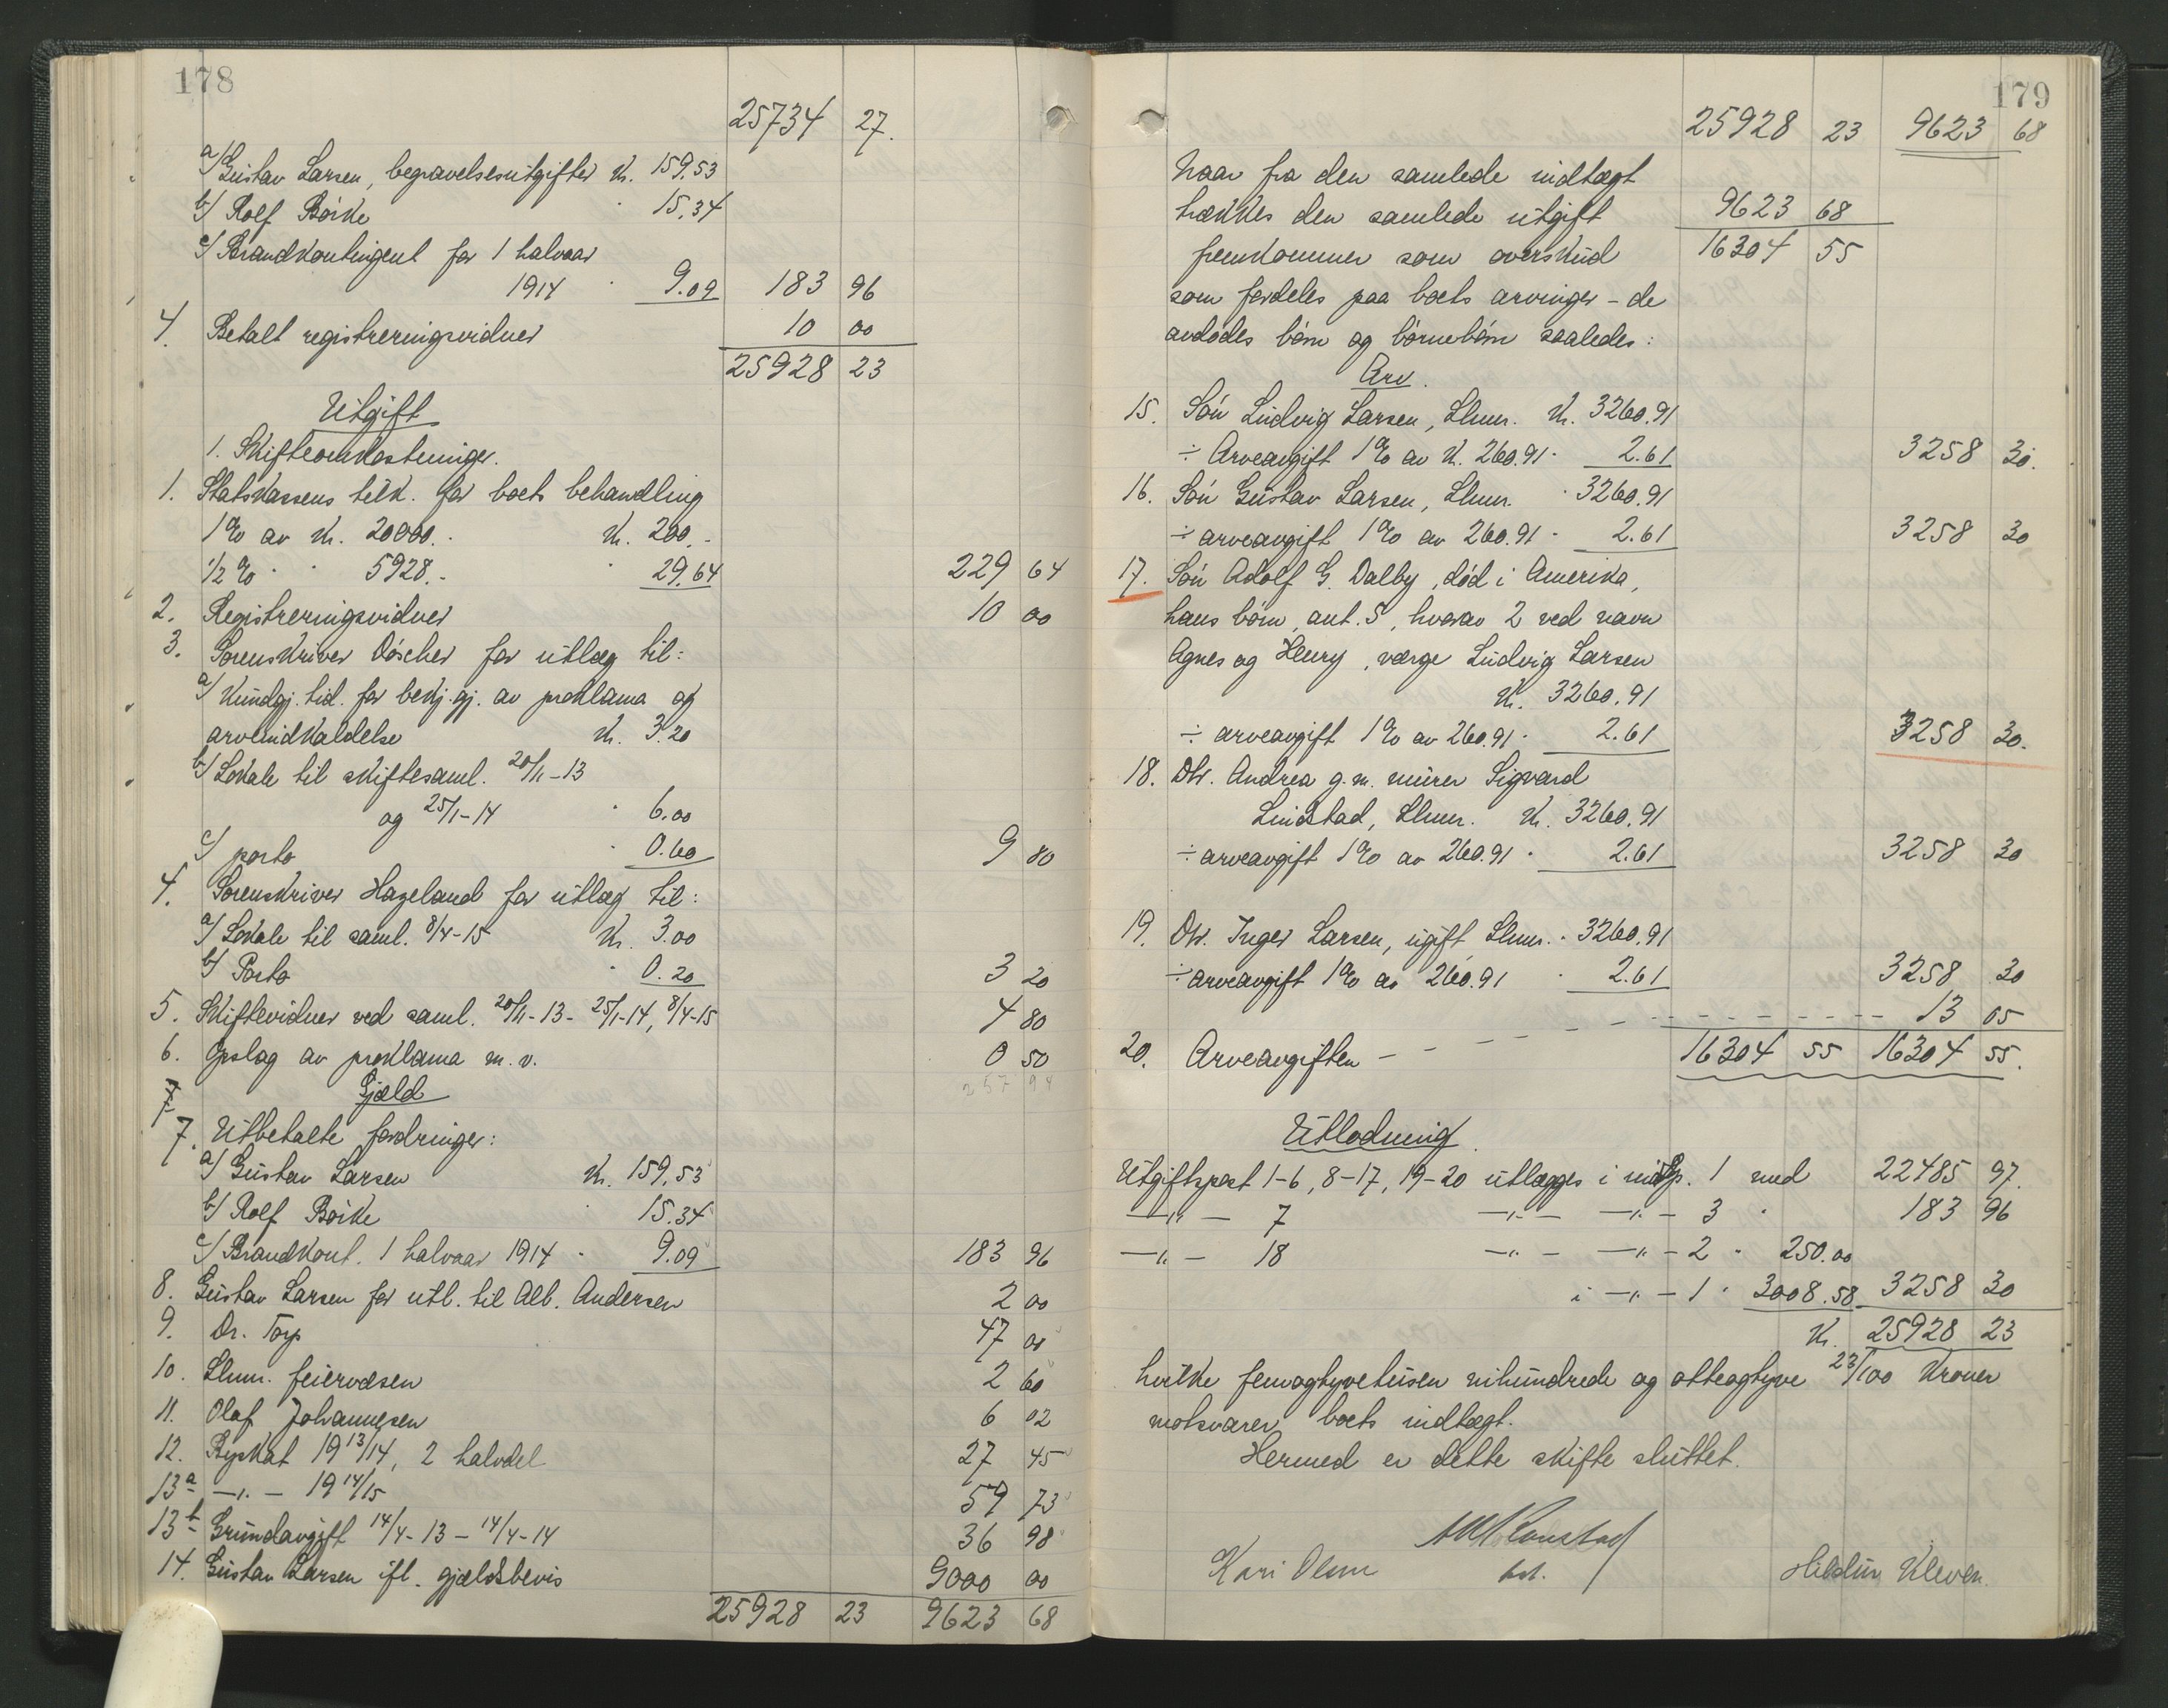 178
25734 27.
a/ Gustav Larsen, begravelsesutgifter Kr. 159.53
b/ Rolf Böike " 15.34
c/ Brandkontingent for 1 halvaar
1914 " 9.09 183 96
4. Betalt registreringsvidner 10 00
25928 23
Utgift
1. Skifteomkostninger.
1. Statskassens tilk. for boets behandling
1% av Kr. 20000.- Kr. 200.-
1/2% " " 5928.- " 29.64 229 64
2. Registreringsvidner 10 00
3. Sorenskriver Döscher for utlæg til:
a/ Kundgj. tid. for bekj.gj. av proklama og
arveindkaldelse Kr. 3.20
b/ Lokale til skiftesaml. 20/11-13
og 25/1-14 " 6.00
c/ porto " 0.60 9 80
4. Sorenskriver Hazeland for utlæg til:
a/ Lokale til saml. 8/4-15 Kr. 3.00
b/ Porto " 0.20 3 20
5. Skiftevidner ved saml. 20/11-13 - 25/1-14, 8/4-15 4 80
6. Opslag av proklama m.v. 0 50
257 94
7. Gjæld
7. Utbetalte fordringer:
a/ Gustav Larsen Kr. 159.53
b/ Rolf Böike " 15.34
c/ Brandkont. 1 halvaar 1914 " 9.09 183 96
8. Gustav Larsen for utl. til Alb. Andersen 2 00
9. Dr. Torp 47 00
10. Llmr. feiervæsen 2 60
11. Olaf Johannesen 6 02
12. Byskat 1913/14, 2 halvdel 27 45
13a -"- 1914/15 59 73
13b Grundavgift 14/4-13 - 14/4-14 36 98
14. Gustav Larsen ifl. gjældsbevis 9000 00
25928 23 9623 68
179
25928 23 9623 68
Naar fra den samlede indtægt
trækkes den samlede utgift 9623 68
fremkommer som overskud 16304 55
som fordeles paa boets arvinger - de
avdödes börn og börnebörn saaledes:
Arv.
15. Sön Ludvig Larsen, Llmr. Kr. 3260.91
÷ Arveavgift 1% av Kr. 260.91 " 2.61 3258 30.
16. Sön Gustav Larsen, Llmr. " 3260.91
÷ arveavgift 1% av 260.91 " 2.61 3258 30
17. Sön Adolf G. Dalby, död i Amerika,
hans börn, ant. 5, hvorav 2 ved navn
Agnes og Henry, værge Ludvig Larsen
Kr. 3260.91
÷ arveavgift 1% av 260.91 " 2.61 3258 30.
18. Dtr. Andrea g.m. murer Sigvard
Lindstad, Llmr. Kr. 3260.91
÷ arveavgift 1% av 260.91 " 2.61 3258 30
19. Dtr. Inger Larsen, ugift, Llmr. " 3260.91
÷ arveavgift 1% av 260.91 " 2.61 3258 30
13 05
20. Arveavgiften - - - - 16304 55 16304 55.
Utlodning
Utgiftspost 1-6, 8-17, 19-20 utlægges i indtp. 1 med 22485 97.
-"- 7 -"- -"- 3 " 183 96
-"- 18 -"- -"- 2 " 250.00
i -"- 1 " 3008.58 3258 30
Kr. 25928 23
hvilke femogtyvetusen nihundrede og otteogtyve 23/100 Kroner
motsvarer boets indtægt.
Hermed er dette skifte sluttet.
Kari Olsen Hildur Kleven.